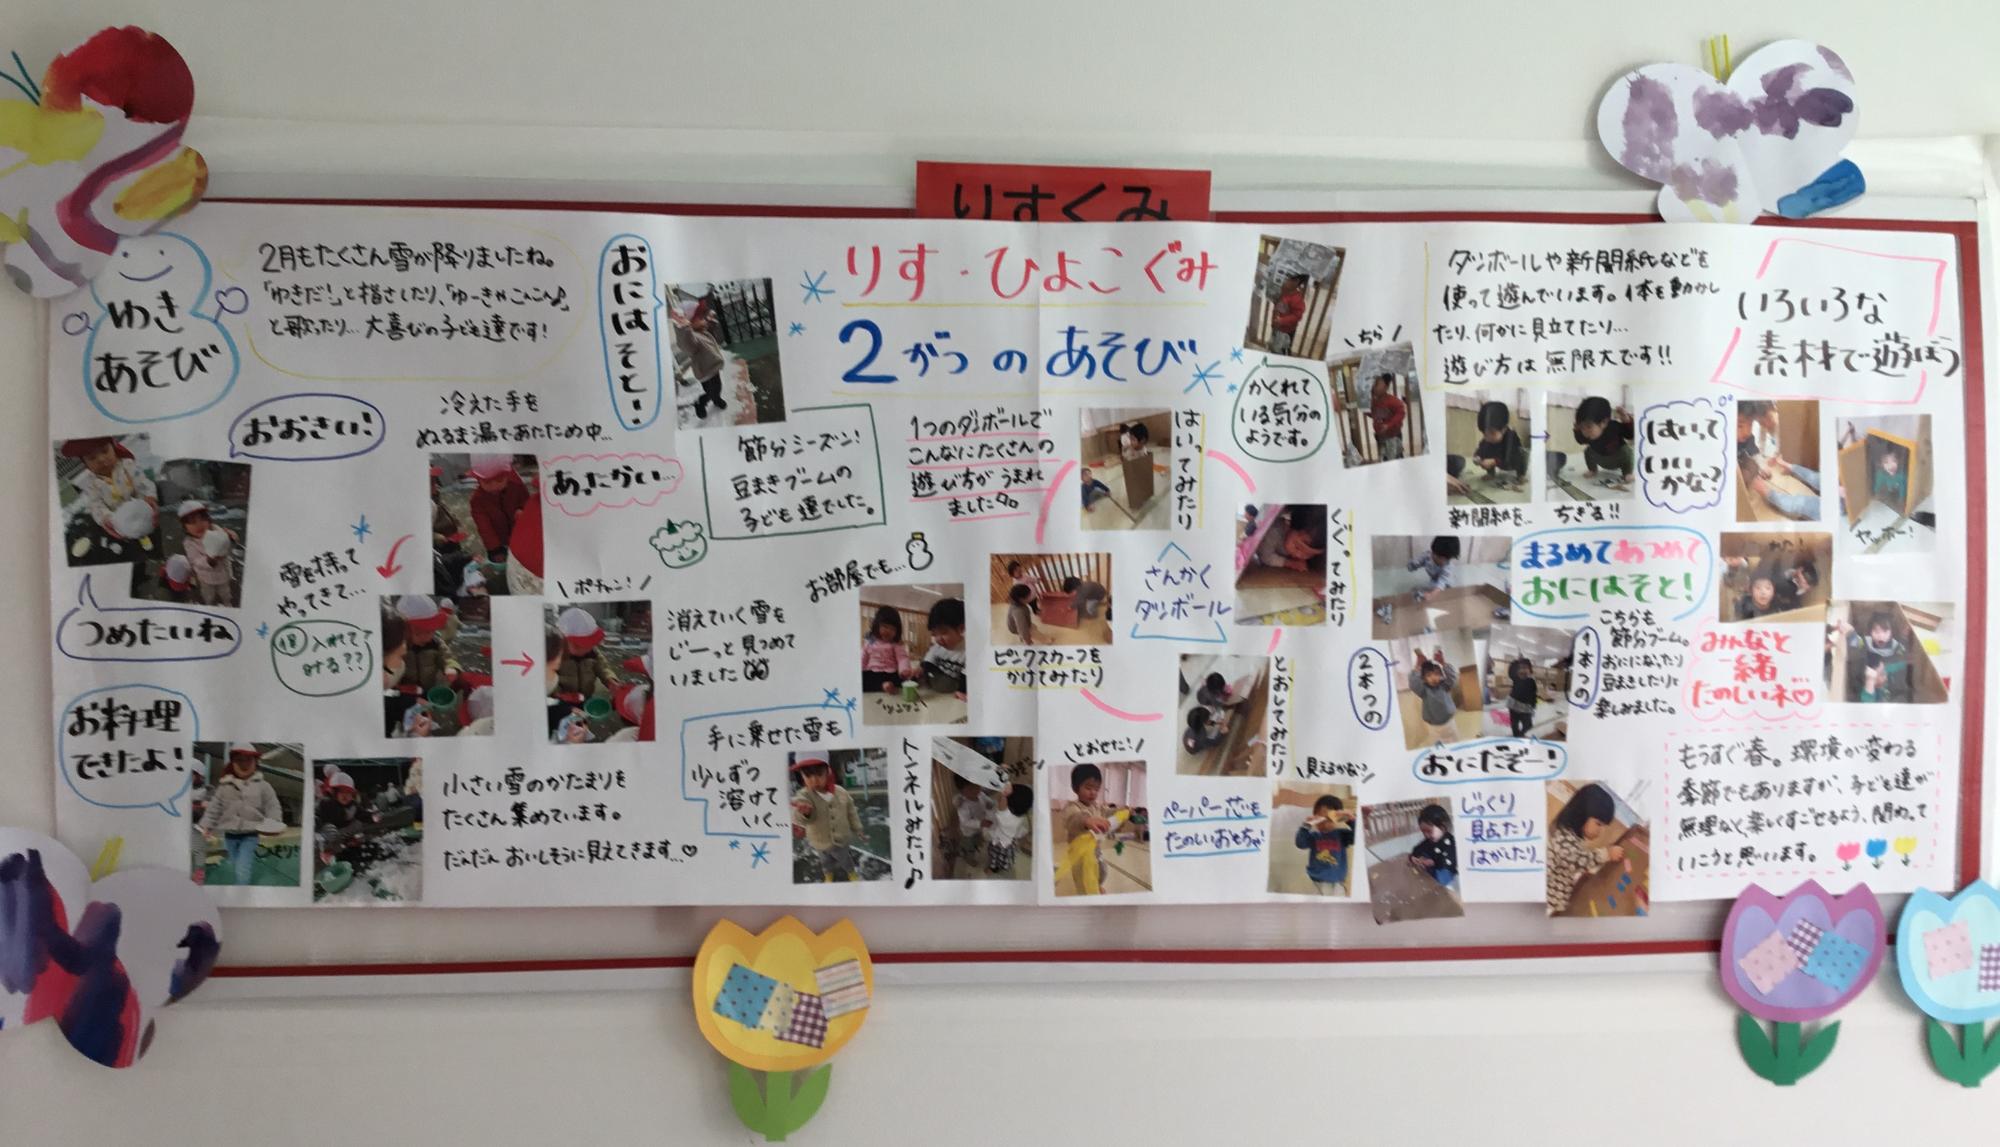 りすくみ
りす・ひよこぐみ
2がつのあそび
ゆき
あそび
2月もたくさん雪が降りましたね。
「ゆきだ!」と指さしたり、「ゆーきやこんこん♪」
と歌ったり…大喜びの子ども達です!
おにはそと!
おおきい!
冷えた手を
ぬるま湯であたため中…
あったかい…
節分シーズン!
豆まきブームの
子ども達でした。
つめたいね
雪を持って
やってきて…
入れて
みる??
ポチャン!
消えていく雪を
じーっと見つめて
いました
お部屋でも…
お料理
できたよ!
小さい雪のかたまりを
たくさん集めています。
だんだんおいしそうに見えてきます…♡
手に乗せた雪も
少しずつ
溶けて
いく…
1つのダンボールで
こんなにたくさんの
遊び方がうまれ
ました
はいってみたり
くぐってみたり
さんかく
ダンボール
ピンクスカーフを
かけてみたり
とおしてみたり
トンネルみたい♪
とおせた!
ペーパー芯も
たのしいおもちゃ!
見えるかな?
かくれて
いる気分の
ようです。
ちら
ダンボールや新聞紙などを
使って遊んでいます。体を動かし
たり、何かに見立てたり…
遊び方は無限大です!!
いろいろな
素材で遊ぼう
新聞紙を…
ちぎる!!
はいって
いい
かな?
ヤッホー!
まるめてあつめて
おにはそと!
こちらも
節分ブーム。
おにになったり
豆まきしたりと
楽しみました。
2本つの
1本つの
おにだぞー!
みんなと
一緒
たのしいネ♡
じっくり
貼ったり
はがしたり…
もうすぐ春。環境が変わる
季節でもありますが、子ども達が
無理なく楽しくすごせるよう、関わって
いこうと思います。